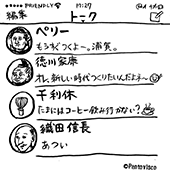 FRIENDLY 17:29
編集 トーク
ペリー
もうすぐつくよー。浦賀。
徳川家康
オレ、新しい時代つくりたいんだよネ〜
千利休
たまにはコーヒー飲み行かない?
織田信長
あつい
©Pantovisco